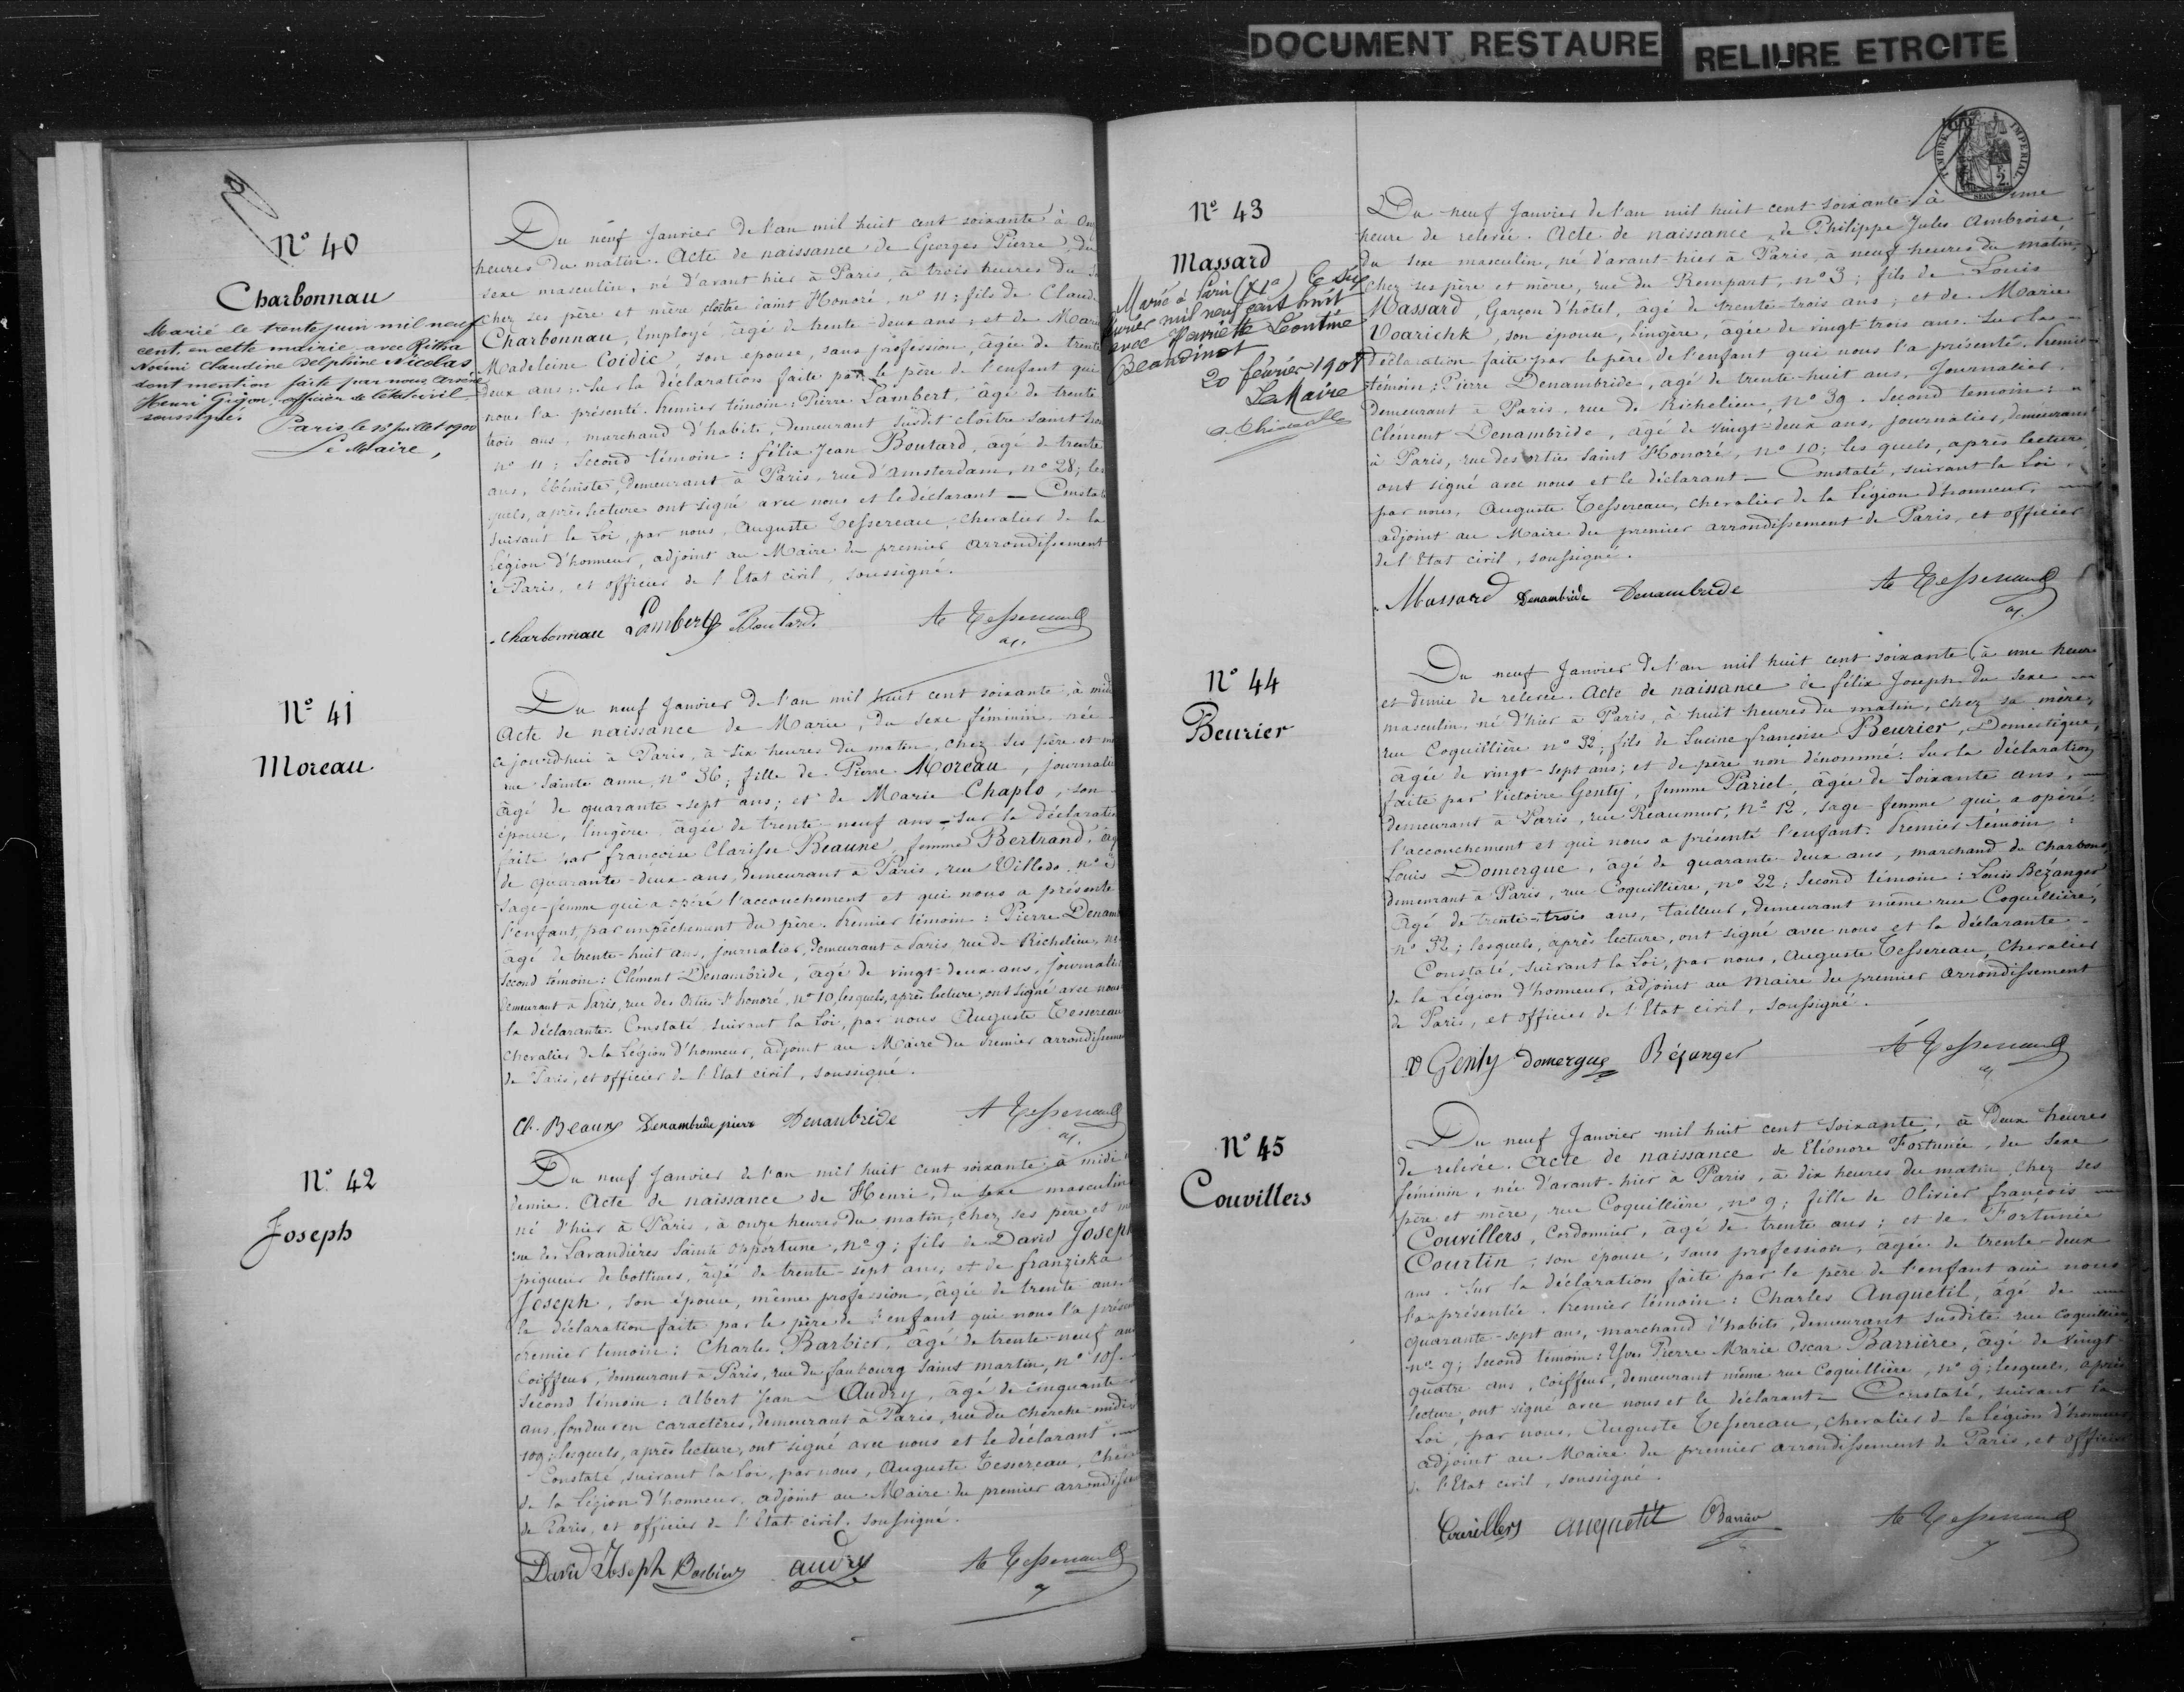 DOCUMENT RESTAURE
RELIURE ETROITE
N° 40
Charbonnau
Marié le trente juin mil neuf
cent, en cette mairie, avec
Noémi Claudine Delphine Nicolas
dont mention faite par nous
Henri Gigon, officier de l'état civil
soussigné.
Paris, le Juillet 1900
Le Maire,
Du neuf Janvier de l'an mil huit cent soixante à
heures du matin. Acte de naissance de Georges Pierre, du
sexe masculin, né d'avant hier à Paris, à trois heures du
chez ses père et mère, cloître saint Honoré, n° 11; fils de
Charbonnau, Employé, âgé de trente-deux ans, et de
Madeleine Coidic, son epouse, sans profession, âgée de trente
deux ans. Sur la déclaration faite par le père de l'enfant qui
nous l'a présenté. Premier témoin: Pierre Lambert, âgé de trente
trois ans, marchand d'habits, demeurant susdit cloître saint
n° 11; Second témoin: félix Jean Boutard, âgé de trente
ans, ébéniste, demeurant à Paris, rue d'amsterdam, n° 28; les
quels, après lecture ont signé avec nous et le déclarant — Constaté
suivant la Loi, par nous, Auguste Tessereau, chevalier de la
Légion d'honneur, adjoint au Maire du premier arrondissement
de Paris, et officier de l'Etat civil, soussigné.
Charbonnau Lambert Boutard A Tessereau
N° 41
Moreau
Du neuf Janvier de l'an mil huit cent soixante, à midi
Acte de naissance de Marie, du sexe féminin, née
ce jourd'hui à Paris, à six heures du matin, chez ses père et
rue Sainte anne, n° 36; fille de Pierre Moreau, journalier
âgé de quarante-sept ans; et de Marie Chaplo, son
épouse, lingère, âgée de trente-neuf ans — Sur la déclaration
faite par françoise Clarisse Beaune, femme Bertrand,
de quarante-deux ans, demeurant à Paris, rue Villedo, n°
sage-femme qui a opéré l'accouchement et qui nous a présenté
l'enfant, par empêchement du père. Premier témoin: Pierre
âgé de trente-huit ans, journalier, demeurant à Paris, rue de Richelieu, n°
second témoin: Clément Denambride, âgé de vingt-deux ans, journalier
demeurant à Paris, rue des Orties St honoré, n° 10, lesquels, après lecture, ont signé avec nous
la déclarante. Constaté suivant la Loi, par nous Auguste Tessereau
Chevalier de la Légion d'honneur, adjoint au Maire du premier arrondissement
de Paris, et officier de l'Etat civil, soussigné.
Cl. Beaune Denambride pierre Denanbride A Tessereau
N° 42
Joseph
Du neuf Janvier de l'an mil huit cent soixante, à midi
demie. Acte de naissance de Henri, du sexe masculin
né d'hier à Paris, à onze heures du matin, chez ses père et
rue des Lavandières Sainte opportune, n° 9; fils de David Joseph
piqueur de bottines, âgé de trente-sept ans, et de franziska
Joseph, son épouse, même profession, âgée de trente ans.
la déclaration faite par le père de l'enfant qui nous l'a
premier témoin: Charles Barbier, âgé de trente-neuf ans
Coiffeur, demeurant à Paris, rue du faubourg Saint martin, n°
Second témoin: Albert Jean Audry, âgé de cinquante
ans, fondeur en caractères, demeurant à Paris, rue du cherche-midi
109; lesquels, après lecture, ont signé avec nous et le déclarant.
Constaté, suivant la Loi, par nous, Auguste Tessereau,
de la Légion d'honneur, adjoint au Maire du premier
de Paris, et officier de l'Etat civil, soussigné.
David Joseph Barbier audry A Tessereau
TIMBRE IMPERIAL
SEINE
N° 43
Massard
Marié à Paris (XIe) le
février mil neuf cent huit
avec Henriette Léontine
Beaudinot
20 février 1908
Le Maire
Du neuf Janvier de l'an mil huit cent soixante, à une
heure de relevée. Acte de naissance de Philippe Jules Ambroise,
du sexe masculin, né d'avant-hier à Paris, à neuf heures du matin,
chez ses père et mère, rue du Rempart, n° 3; fils de Louis
Massard, Garçon d'hôtel, âgé de trente-trois ans; et de Marie
Voarichk, son épouse, lingère, âgée de vingt trois ans. Sur la
Déclaration faite par le père de l'enfant qui nous l'a présenté. Premier
témoin: Pierre Denambride, âgé de trente-huit ans, Journalier,
demeurant à Paris, rue de Richelieu, n° 39. Second témoin:
Clément Denambride, âgé de vingt-deux ans, journalier, demeurant
à Paris, rue des orties Saint Honoré, n° 10; les quels, après lecture,
ont signé avec nous et le déclarant — Constaté, suivant la Loi,
par nous, Auguste Tessereau, chevalier de la Légion d'honneur,
adjoint au Maire du premier arrondissement de Paris, et officier
de l'Etat civil, soussigné.
Massard Denambride Denambride A Tessereau
N° 44
Beurier
Du neuf Janvier de l'an mil huit cent soixante, à une heure
et demie de relevée. Acte de naissance de félix Joseph, du sexe
masculin, né d'hier à Paris, à huit heures du matin, chez sa mère,
rue Coquillière n° 32; fils de Lucine françoise Beurier, Domestique,
âgée de vingt-sept ans; et de père non dénommé. Sur la déclaration
faite par Victoire Genty, femme Pariel, âgée de soixante ans,
demeurant à Paris, rue Reaumur, n° 12, sage-femme qui a opéré
l'accouchement et qui nous a présenté l'enfant. Premier témoin:
Louis Domergue, âgé de quarante-deux ans, marchand de charbons,
demeurant à Paris, rue Coquillière, n° 22; Second témoin: Louis Bézanger
âgé de trente-trois ans, tailleur, demeurant même rue Coquillière,
n° 32; lesquels, après lecture, ont signé avec nous et la déclarante.
Constaté, suivant la Loi, par nous, Auguste Tessereau, Chevalier
de la Légion d'honneur, adjoint au Maire du premier arrondissement
de Paris, et officier de l'Etat civil, soussigné.
V Genty Domergue Bézanger A Tessereau
N° 45
Couvillers
Du neuf Janvier mil huit cent soixante, à Deux heures
de relevée. Acte de naissance de Eléonore Fortunée, du sexe
féminin, née d'avant-hier à Paris, à dix heures du matin, chez ses
père et mère, rue Coquillière, n° 9; fille de Olivier françois
Couvillers, Cordonnier, âgé de trente ans; et de Fortunée
Courtin, son épouse, sans profession, âgée de trente-deux
ans. Sur la déclaration faite par le père de l'enfant qui nous
l'a présentée. Premier témoin: Charles Anquetil, âgé de
quarante-sept ans, marchand d'habits, demeurant susdite rue Coquillière
n° 9; Second témoin: Yves Pierre Marie Oscar Barrière, âgé de vingt
quatre ans, coiffeur, demeurant même rue Coquillière, n° 9; lesquels, après
lecture, ont signé avec nous et le déclarant — Constaté, suivant la
Loi, par nous, Auguste Tessereau, chevalier de la légion d'honneur
adjoint au Maire du premier arrondissement de Paris, et officier
de l'Etat civil, soussigné.
Couvillers anquetil Barrière A Tessereau